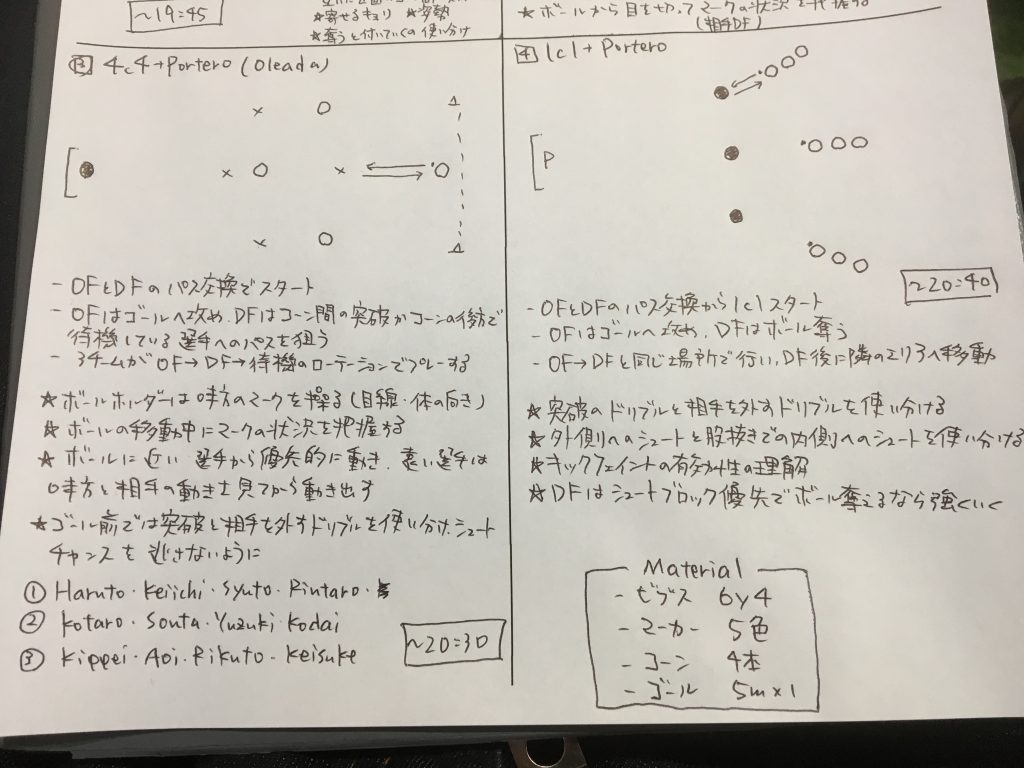 ~19:45
★寄せるキョリ ★姿勢
★奪うと付いていくの使い分け
★ボールから目を切ってマークの状況を把握する
(相手DF)
③ 4c4+Portero (Oleada)
- OFとDFのパス交換でスタート
- OFはゴールへ攻め、DFはコーン間の突破かコーンの後方で
待機している選手へのパスを狙う
- 3チームがOF→DF→待機のローテーションでプレーする
★ボールホルダーは味方のマークを操る(目線・体の向き)
★ボールの移動中にマークの状況を把握する
★ボールに近い選手から優先的に動き、遠い選手は
味方と相手の動きを見てから動き出す
★ゴール前では突破と相手を外すドリブルを使い分け、シュート
チャンスを逃さないように
① Haruto・Keiichi・Syuto・Rintaro・
② Kotaro・Souta・Yuzuki・Kodai
③ Kippei・Aoi・Rikuto・Keisuke
~20:30
④ 1c1+Portero
P
~20:40
- OFとDFのパス交換から1c1スタート
- OFはゴールへ攻め、DFはボール奪う
- OF→DFと同じ場所で行い、DF後に隣のエリアへ移動
★突破のドリブルと相手を外すドリブルを使い分ける
★外側へのシュートと股抜きでの内側へのシュートを使い分ける
★キックフェイントの有効性の理解
★DFはシュートブロック優先でボール奪えるなら強くいく
Material
- ビブス 6y4
- マーカー 5色
- コーン 4本
- ゴール 5m×1